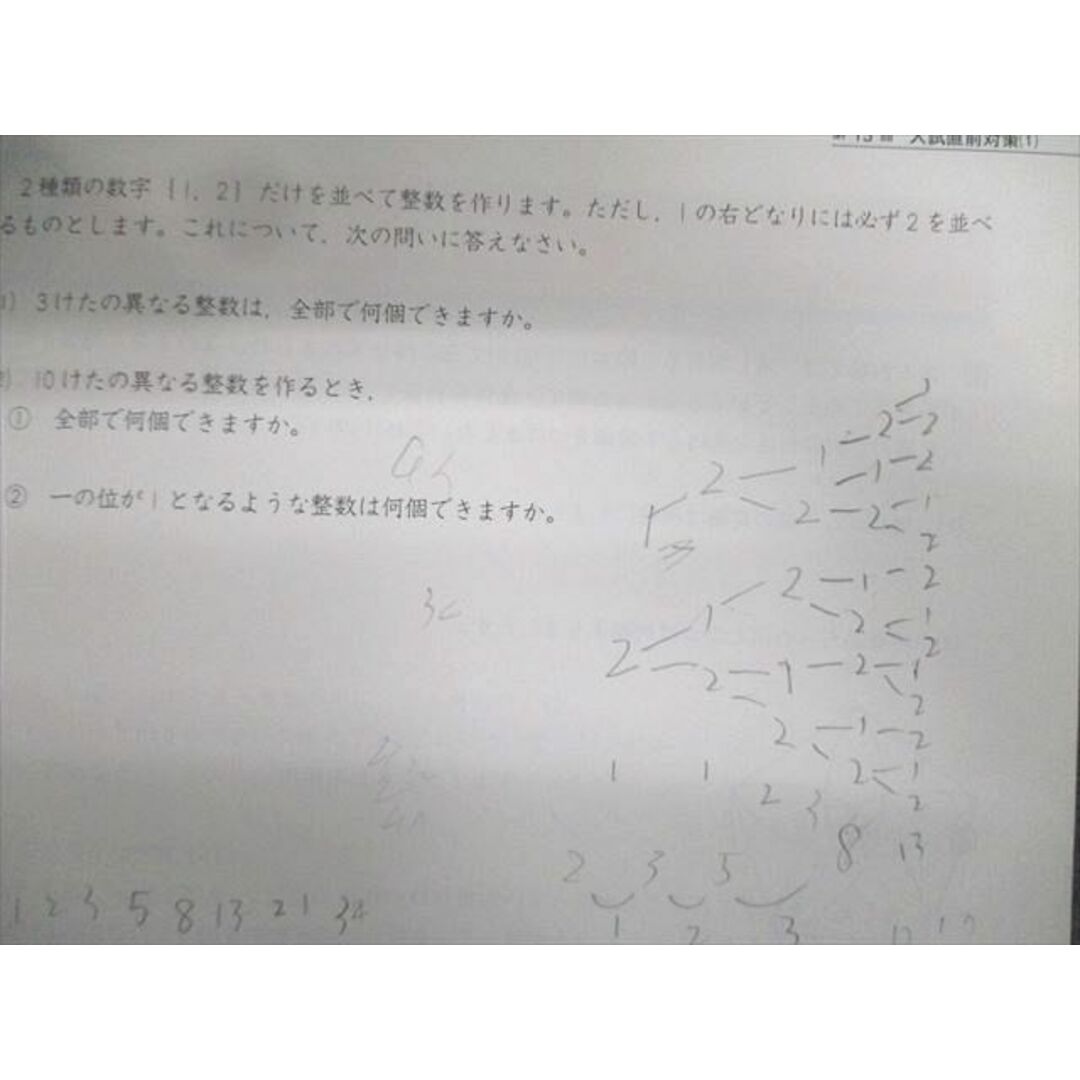 入試直前対策(1)
2種類の数字{1, 2}だけを並べて整数を作ります。ただし，1の右どなりには必ず2を並べ
るものとします。これについて，次の問いに答えなさい。
1) 3けたの異なる整数は，全部で何個できますか。
2) 10けたの異なる整数を作るとき，
① 全部で何個できますか。
② 一の位が1となるような整数は何個できますか。
1
2 2
2 1 1 2
1 2 2 1
2
2 1 2
1 2 1
2 2
2 1 2 1
2
2 1 2
1 1 2 1
2 3 2
8 13
2 3 5
1 2 3 5 8 13 21 34
1 2 3